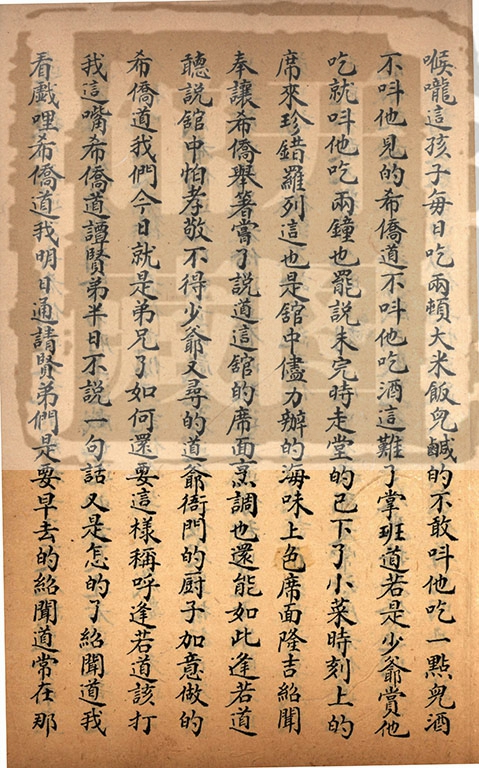 喉嚨這孩子每日吃兩頓大米飯兒鹹的不敢呌他吃一點兒酒
不呌他見的希僑道不呌他吃酒這難了掌班道若是少爺賞他
吃就呌他吃兩鐘也罷說未完時走堂的已下了小菜時刻上的
席來珍錯羅列這也是舘中儘力辦的海味上色席面隆吉紹聞
奉讓希僑舉箸嘗了說道這舘的席面烹調也還能如此逢若道
聽説舘中怕孝敬不得少爺又尋的道爺衙門的厨子加意做的
希僑道我們今日就是弟兄了如何還要這樣稱呼逢若道該打
我這嘴希僑道譚賢弟半日不說一句話又是怎的了紹聞道我
看戲哩希僑道我明日通請賢弟們是要早去的紹聞道常在那